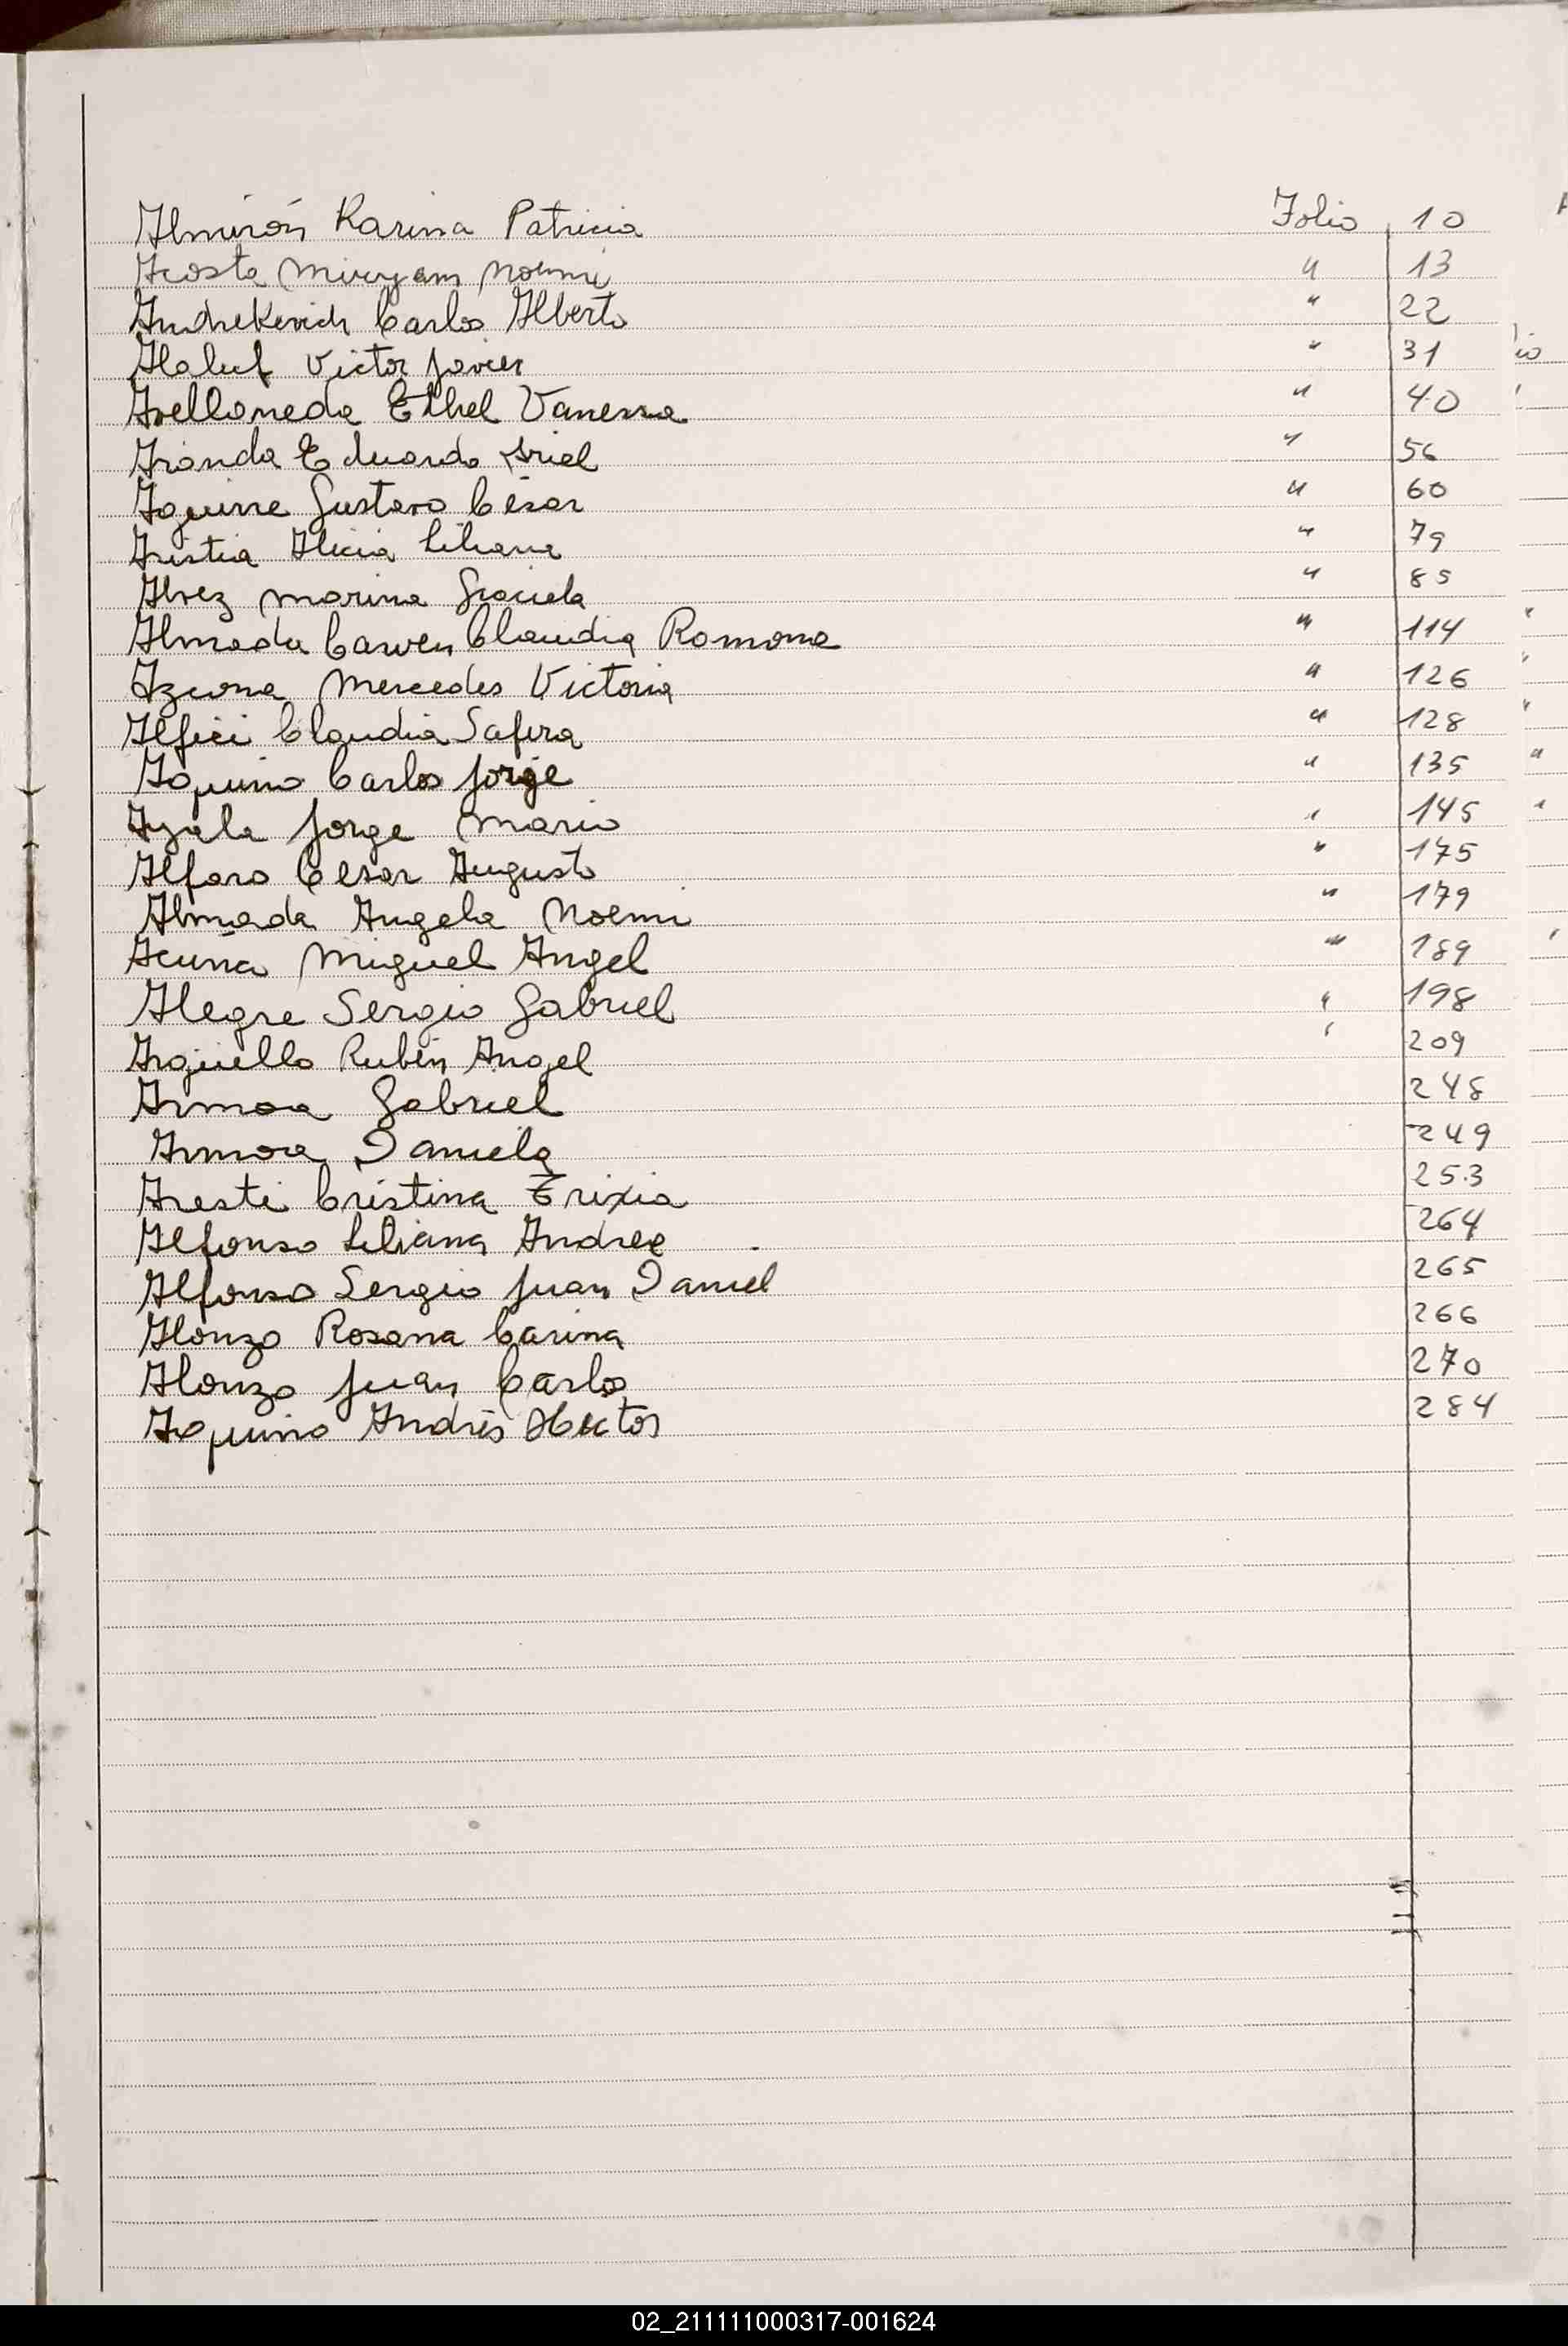 Almirón Karina Patricia Folio 10
Acosta Miryam Noemi " 13
Andrekevich Carlos Alberto " 22
Aluf Victor Javier " 31
Avellaneda Ethel Vanessa " 40
Aranda Eduardo Ariel " 56
Aguirre Gustavo César " 60
Aristia Alicia Liliana " 79
Alvez Marina Graciela " 85
Almada Carmen Claudia Romona " 114
Azcona Mercedes Victoria " 126
Claudia Safira " 128
Aquino Carlos Jorge " 135
Ayala Jorge Mario " 145
Alfaro Cesar Augusto " 175
Almada Angela Noemi " 179
Acuña Miguel Angel " 189
Alegre Sergio Gabriel " 198
Argüello Rubén Angel " 209
Armoa Gabriel 248
Armoa Daniela 249
Aresti Cristina Trixia 253
Alfonso Liliana Andrea 264
Alfonso Sergio Juan Daniel 265
Alonzo Rosana Carina 266
Alonzo Juan Carlos 270
Aquino Andrés Hector 284
02_211111000317-001624